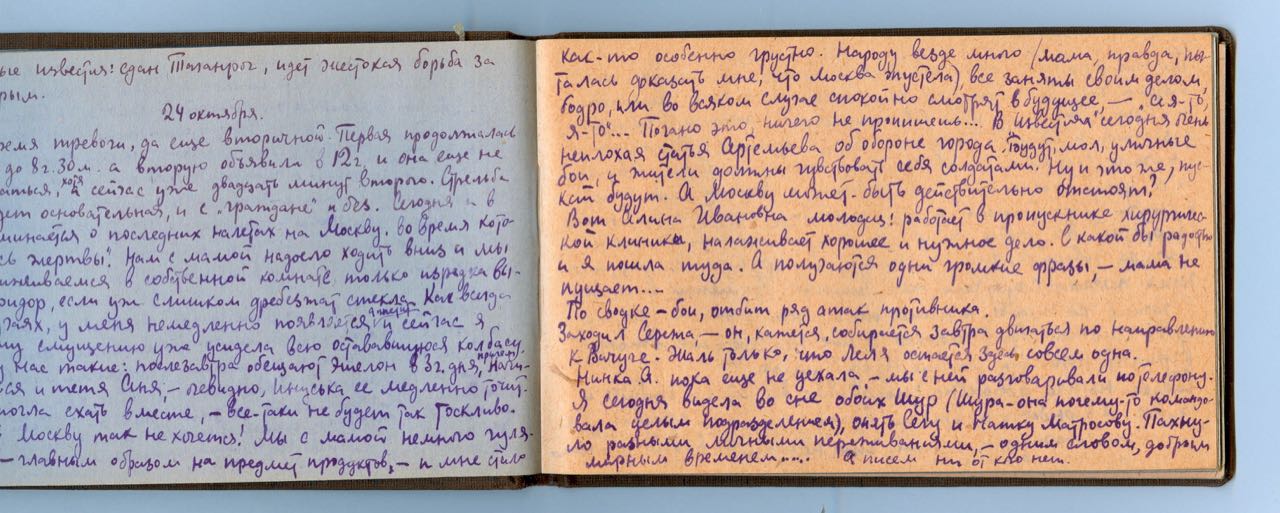 ые известия: сдан Таганрог, идет жестокая борьба за
рым.
24 октября.
ремя тревоги, да еще вторичной. Первая продолжалась
до 8 г. 30 м. а вторую объявили в 12 г. и она еще не
аться, хотя сейчас уже двадцать минут второго. Стрельба
дет основательная, и с "граждане" и без. Сегодня и в
минается о последних налетах на Москву, во время кото-
сь жертвы". Нам с мамой надоело ходить вниз и мы
живаемся в собственной комнате, только изредка вы-
ридор, если уж слишком дребезжат стекла. Как всегда
учаях, у меня немедленно появляется аппетит и сейчас я
му смущению уже усидела всю оставшуюся колбасу.
у нас такие: послезавтра обещают эшелон в 3 г. дня, причем
ся и тетя Аня, – очевидно, Инуська ее медленно точит.
могла ехать вместе, – все-таки не будет так тоскливо.
Москву так не хочется! Мы с мамой немного гуля-
– главным образом на предмет продуктов, – и мне стало
как-то особенно грустно. Народу везде много (мама, правда, пы-
талась доказать мне, что Москва опустела), все заняты своим делом,
бодро, или во всяком случае спокойно смотрят в будущее, – а я-то,
я-то!... Погано это, ничего не пропишешь... В "Известиях" сегодня очень
неплохая статья Артемьева об обороне города. Будут, мол, уличные
бои, и жители должны чувствовать себя солдатами. Ну и что же, пус-
кай будут. А Москву может быть действительно отстоят?
Вот Ивановна молодец! работает в пропускнике хирургичес-
кой клиники, налаживает хорошее и нужное дело. С какой бы радостью
и я пошла туда. А получаются одни громкие фразы – мама не
пущает....
По сводке – бои, отбит ряд атак противника.
Заходил Сережа – он, кажется, собирается завтра двигаться по направлению
к Вичуге. Жаль только, что Леля остается здесь совсем одна.
Нинка А. пока еще не уехала, – мы с ней разговаривали по телефону.
Я сегодня видела во сне обоих Шур (Шура-она почему-то командо-
вала целым подразделением), опять Сегу и Наташку Матросову. Пахну-
ло разными личными переживаниями, – одним словом, добрым
мирным временем..... А писем ни от кого нет.